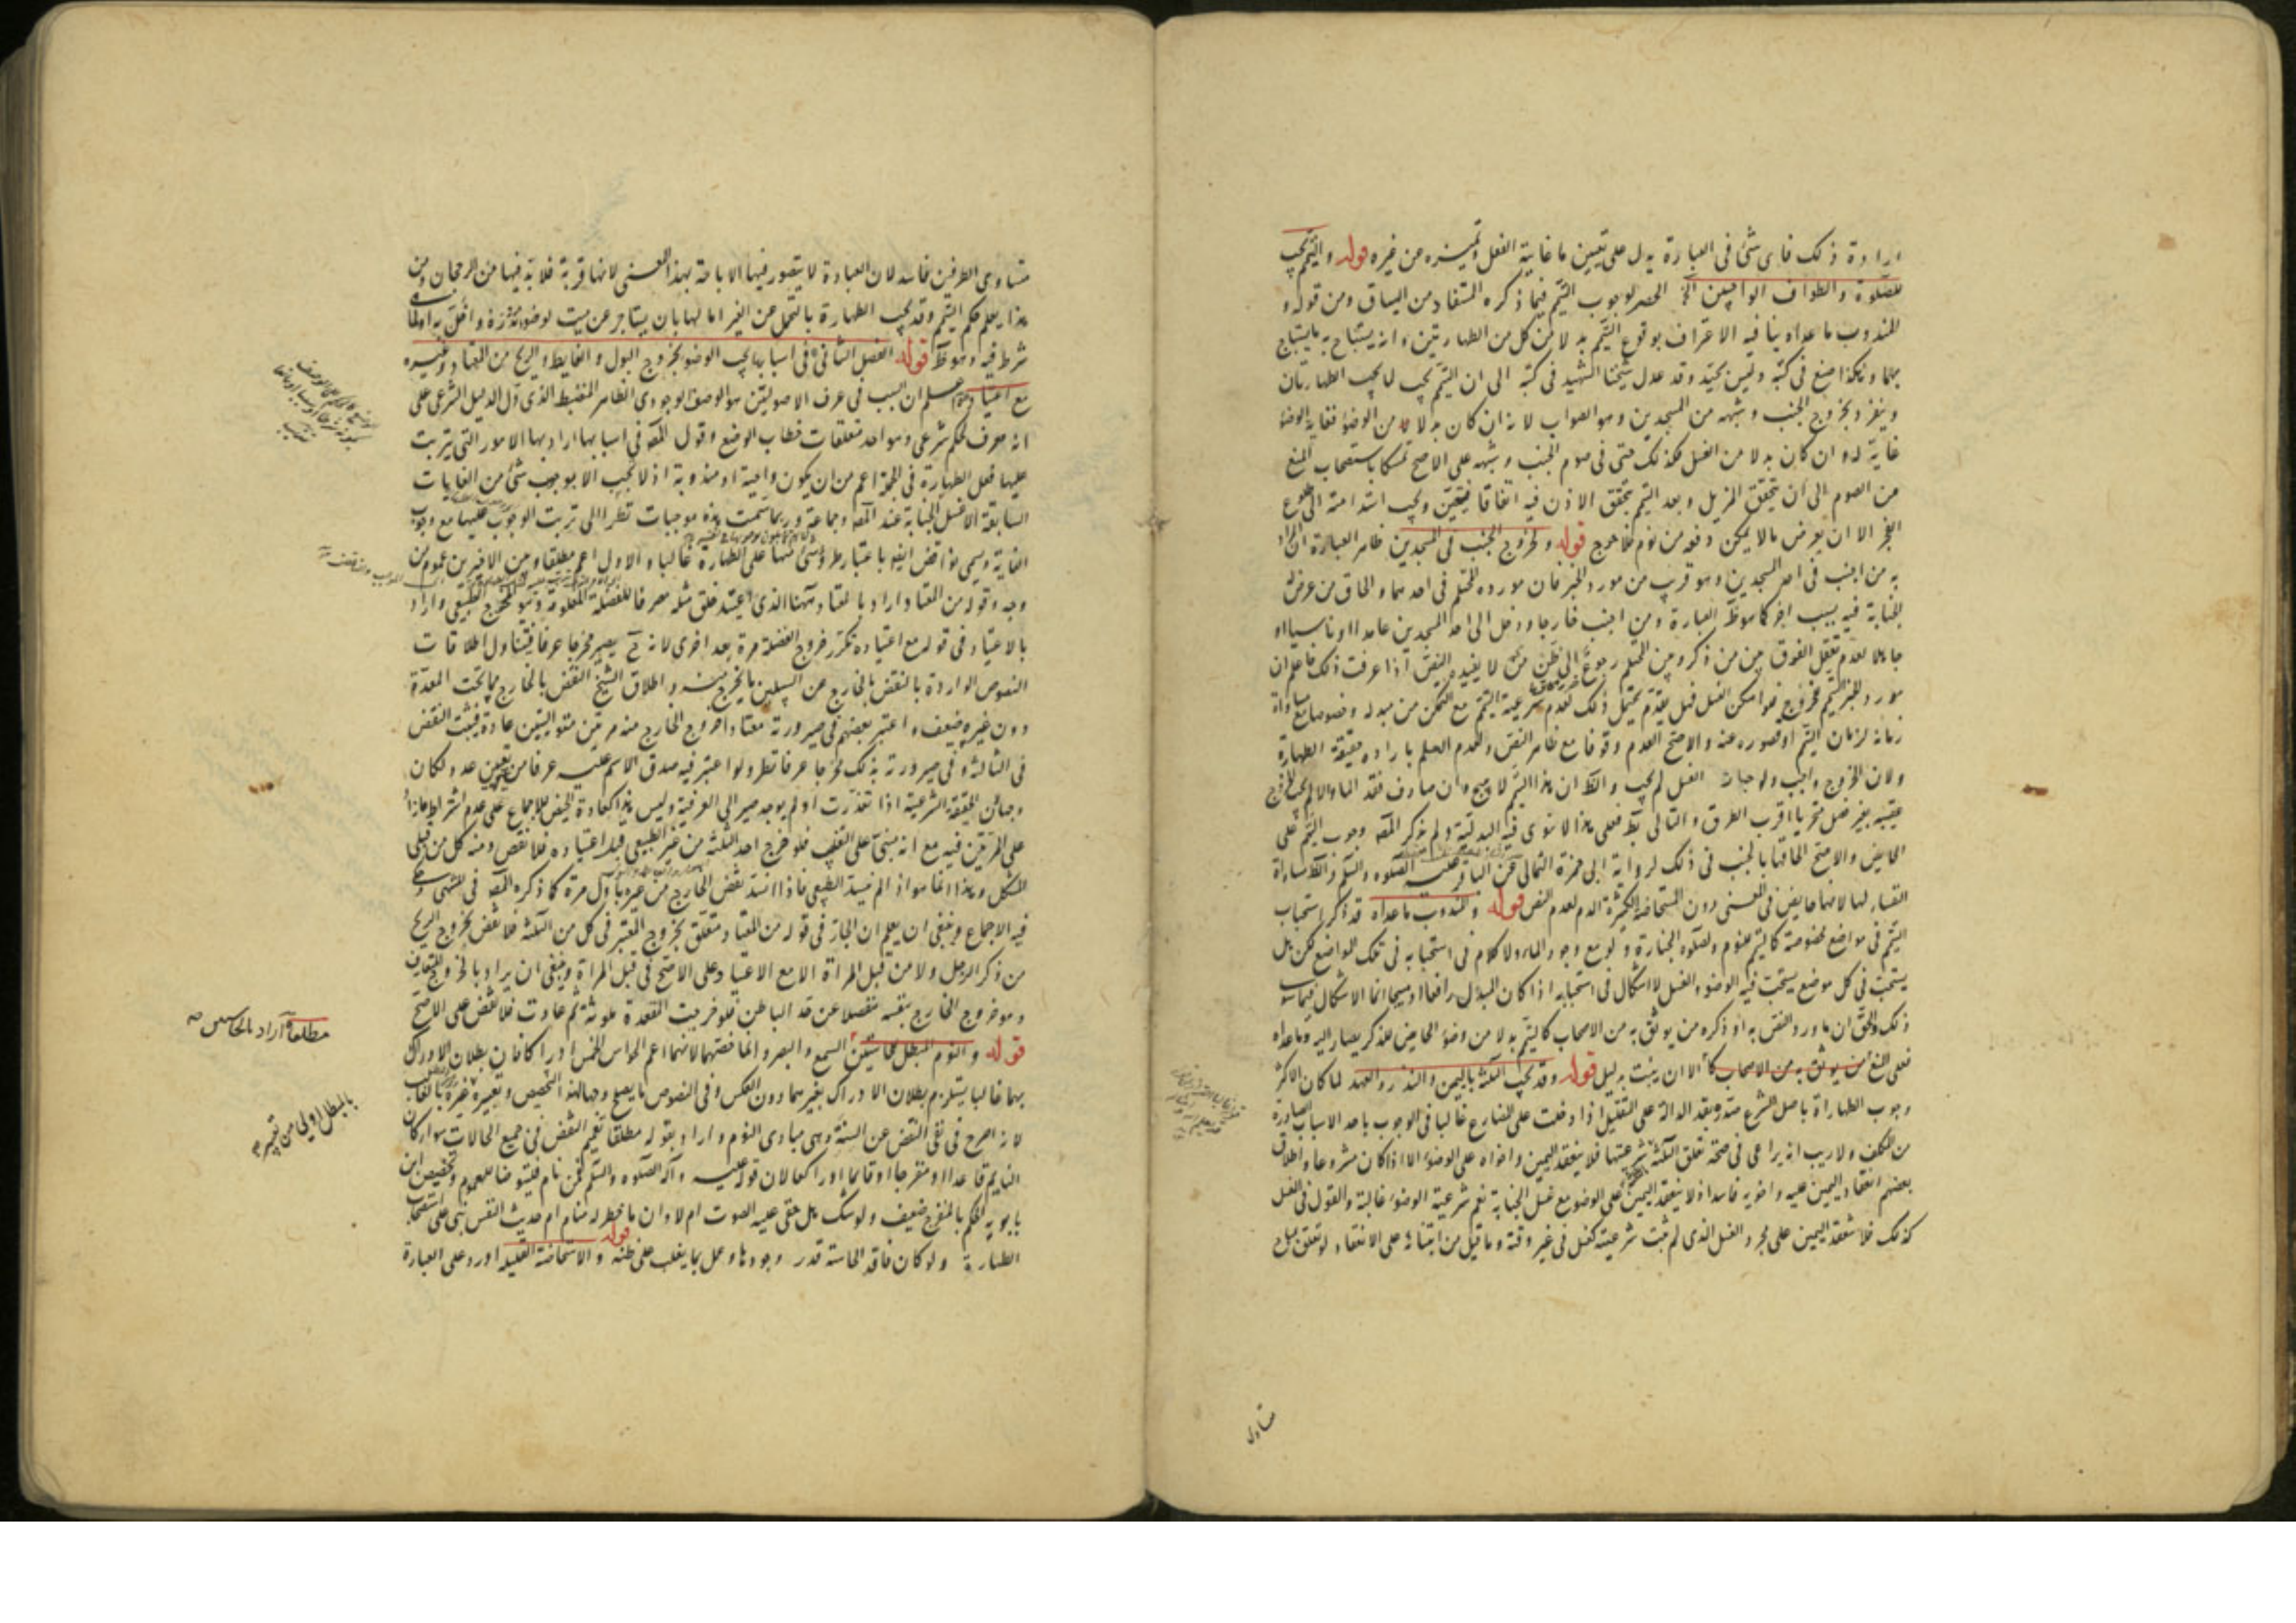 ارادة ذلك فاى شئ فى العبارة يدل على تعيين ما غاية الفعل وتميزه من غيره قوله والتيمم يجب
للصلوة والطواف الواجبين الخ الحصر لوجوب التيمم فيما ذكره المستفاد من السياق ومن قوله و
المندوب ما عداه ينافيه الاعتراف بوقوع التيمم بدلا من كل من الطهارتين وانه يستباح به ما يستباح
بهما وهكذا صنع فى كتبه وليس بجيد وقد عدل شيخنا الشهيد فى كتبه الى ان التيمم يجب لما يجب الطهارتان
وينفرد بخروج الجنب وشبهه من المسجدين وهو الصواب لانه ان كان بدلا من الوضوء فغاية الوضوء
غاية له وان كان بدلا من الغسل فكذلك حتى فى صوم الجنب وشبهه على الاصح تمسكا باستصحاب المنع
من الصوم الى ان يتحقق المزيل وبعد التيمم يتحقق الاذن فيه اتفاقا فيتعين ويجب استدامته الى طلوع
الفجر الا ان يعرض مالا يمكن دفعه من نوم فلا حرج قوله ولخروج الجنب فى المسجدين ظاهر العبارة ان المراد
به من اجنب فى احد المسجدين وهو قريب من مورد الخبر فان مورده المحتلم فى احدهما والحاق من عرض له
الجنابة فيه بسبب اخر كما هو ظ العبارة ومن اجنب خارجا ودخل الى احد المسجدين عامدا او ناسيا او
جاهلا لعدم تعقل الفرق بين من ذكر وبين المحتلم رجوع الى ظن لا يفيده النص اذا عرفت ذلك فاعلم ان
مورد الخبر التيمم للخروج فلو امكن الغسل فهل يقدم يحتمل ذلك لعدم شرعية التيمم مع التمكن من مبدله وخصوصا مع مساواة
زمانه لزمان التيمم او قصوره عنه والاصح العدم وقوفا مع ظاهر النص ولعدم العلم بارادة حقيقة الطهارة
ولان الخروج واجب الغسل لم يجب والظ ان هذا التيمم لا يبيح وان صادف فقد الماء والا لم يجب الخروج
عقيبه بغير فصل متحريا اقرب الطرق والتالى بط فعلى هذا لا ينوى فيه البدلية ولم يذكر المصه وجوب التيمم على
الحايض والاصح الحاقها بالجنب فى ذلك لرواية ابى حمزة الثمالى عن الباقر عليه الصلوه والسلم والظ مساواة
النفساء لها لانها حايض فى المعنى دون المستحاضة الكثيرة الدم لعدم النص قوله والمندوب ما عداه قد ذكر استحباب
التيمم فى مواضع مخصوصة كالتيمم للنوم ولصلوه الجنازة ولو مع وجود الماء ولا كلام فى استحبابه فى تلك المواضع لكن هل
يستحب فى كل موضع يستحب فيه الوضوء والغسل لا اشكال فى استحبابه اذا كان المبدل رافعا او مبيحا انما الاشكال فيما سوى
ذلك والحق ان ما ورد النص به او ذكره من يوثق به من الاصحاب كالتيمم بدلا من وضوء الحايض للذكر يصار اليه وما عداه
فعلى المنع الا ان يثبت بدليل قوله وقد تجب الثلثة باليمين والنذر والعهد لما كان الاكثر
وجوب الطهارة باصل الشرع صدر بقد الدالة على التقليل اذا دخلت على المضارع غالبا فى الوجوب باحد الاسباب الصادرة
من المكلف ولا ريب انه يراعى فى صحة تعلق الثلثة شرعيتها فلا ينعقد اليمين واخواه على الوضوء الا اذا كان مشروعا واطلاق
بعضهم انعقاد اليمين عليه واخويه فاسد اذ لا ينعقد اليمين على الوضوء مع غسل الجنابة نعم شرعية الوضوء غالبة والقول فى الغسل
كذلك فلا تنعقد اليمين على مجرد الغسل الذى لم تثبت شرعيته كغسل فى غير وقته وما قيل من ابتنائه على الانعقاد لو تعلق بمباح
متساوى
متساوى الطرفين فاسد لان العبادة لا يتصور فيها الاباحة بهذا المعنى لانها قربة فلا بد فيها من الرجحان ومن
هذا يعلم حكم التيمم وقد تجب الطهارة بالتحمل عن الغير اما لها بان يستاجر عن ميت لوضوء نذره واخل به او لما
شرط فيه وهو ظ قوله الفصل الثانى فى اسبابها يجب الوضوء بخروج البول والغايط والريح من المعتاد وغيره
مع اعتياده اعلم ان السبب فى عرف الاصوليين هو الوصف الوجودى الظاهر المنضبط الذى دل الدليل الشرعى على
انه معرف لحكم شرعى وهو احد متعلقات خطاب الوضع وقول المصه فى اسبابها اراد بها الامور التى يترتب
عليها فعل الطهارة فى الجملة اعم من ان يكون واجبة او مندوبة اذ لا تجب الا بوجوب شئ من الغايات
السابقة الا غسل الجنابة عند المصه وجماعة وربما سميت هذه موجبات نظرا الى ترتب الوجوب عليها مع وجوب
الغاية وتسمى نواقض ايضا باعتبار طرو شئ منها على الطهارة غالبا والاول اعم مطلقا ومن الاخيرين عموم من
وجه وقوله من المعتاد اراد بالمعتاد هنا الذى اعتيد خلق مثله مصرفا للفضلة المعلومة وهو المخرج الطبيعى واراد
بالاعتياد فى قوله مع اعتياده تكرر خروج الفضلة مرة بعد اخرى لانه ح يصير مخرجا عرفا فيتناول اطلاقات
النصوص الواردة بالنقض بالخارج من السبيلين ما يخرج منه واطلاق الشيخ النقض بالخارج مما تحت المعدة
دون غيره ضعيف واعتبر بعضهم فى صيرورته معتادا خروج الخارج منه مرتين متواليتين عادة فيثبت النقض
فى الثالثة وفى صيرورته بذلك مخرجا عرفا نظر ولو اعتبر فيه صدق الاسم عليه عرفا من غير تعيين عدد لكان
وجها لان الحقيقة الشرعية اذا تعذرت او لم يوجد صير الى العرفية وليس هذا كعادة الحيض للاجماع على عدم اشتراط ما زاد
على المرتين فيه مع انه مبنى على التغليب فلو خرج احد الثلثة من غير الطبيعى قبل اعتياده فلا نقض ومنه كل من قبلى
المشكل وهذا انما هو اذا لم ينسد الطبيعى فاذا انسد نقض الخارج من غيره باول مرة كما ذكره المصه فى المنتهى وحكى
فيه الاجماع وينبغى ان يعلم ان الجار فى قوله من المعتاد متعلق بخروج المعتبر فى كل من الثلثة فلا نقض بخروج الريح
من ذكر الرجل ولا من قبل المراة الا مع الاعتياد على الاصح فى قبل المراة وينبغى ان يراد بالخروج المتعارف
وهو خروج الخارج بنفسه منفصلا عن حد الباطن فلو خرجت المقعدة ملوثة ثم عادت فلا نقض على الاصح
قوله والنوم المبطل للحاستين السمع والبصر وانما خصتهما لانهما اعم الحواس الخمس ادراكا فان بطلان الادراك
بهما غالبا يستلزم بطلان الادراك بغيرهما دون العكس وفى النصوص ما يصلح وجها لهذا التخصيص وتعبيره بالغالب
لانه اصرح فى نفى النقض عن السنة وهى مبادى النوم واراد بقوله مطلقا تعميم النقض فى جميع الحالات سواء كان
النايم قاعدا او منفرجا او قائما او راكعا لان قوله عليه وآله الصلوه والسلم فمن نام فليتوضأ للعموم وتخصيص ابن
بابويه الحكم بالمنفرج ضعيف ولو شك هل خفى عليه الصوت ام لا او ان ما خطر له منام ام حديث النفس بنى على استصحاب
الطهارة ولو كان فاقد الحاسة قدر وجودها وعمل بما يغلب على ظنه قوله والاستحاضة القليله اورد على العبارة
مطلقا اراد بالحاستين
بالمبطل اولى من تعبيره